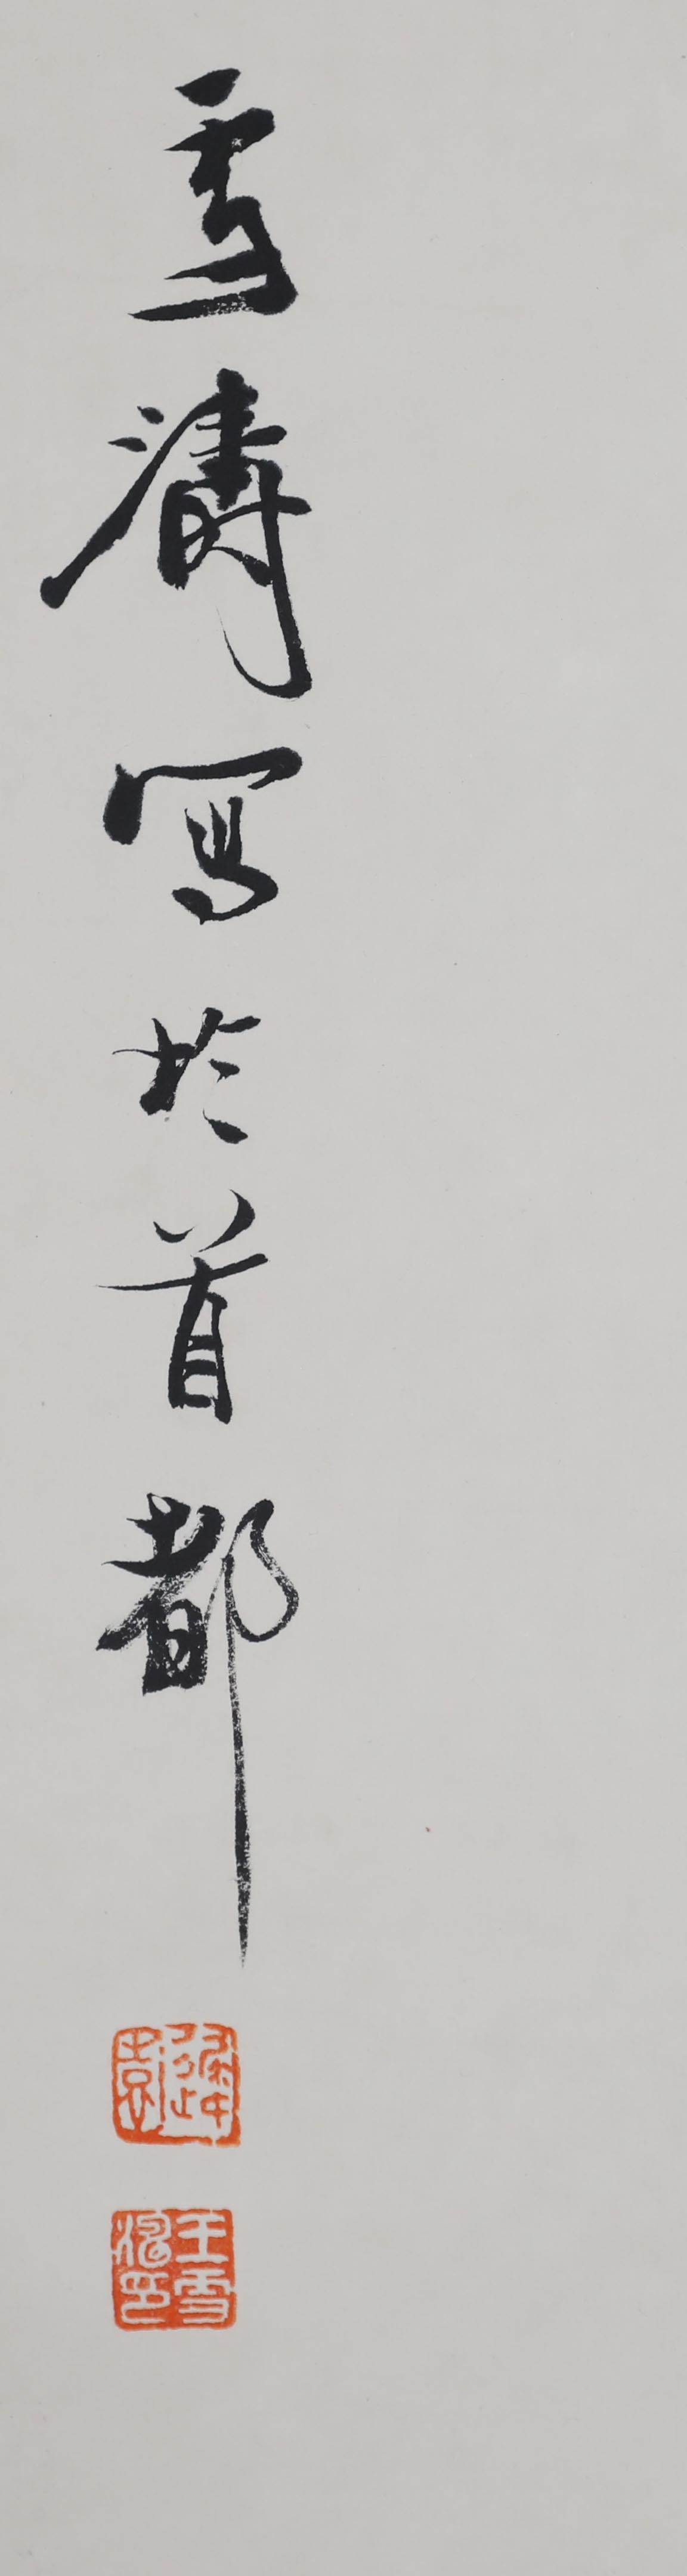 雪濤寫於首都
遲園
王雪濤印